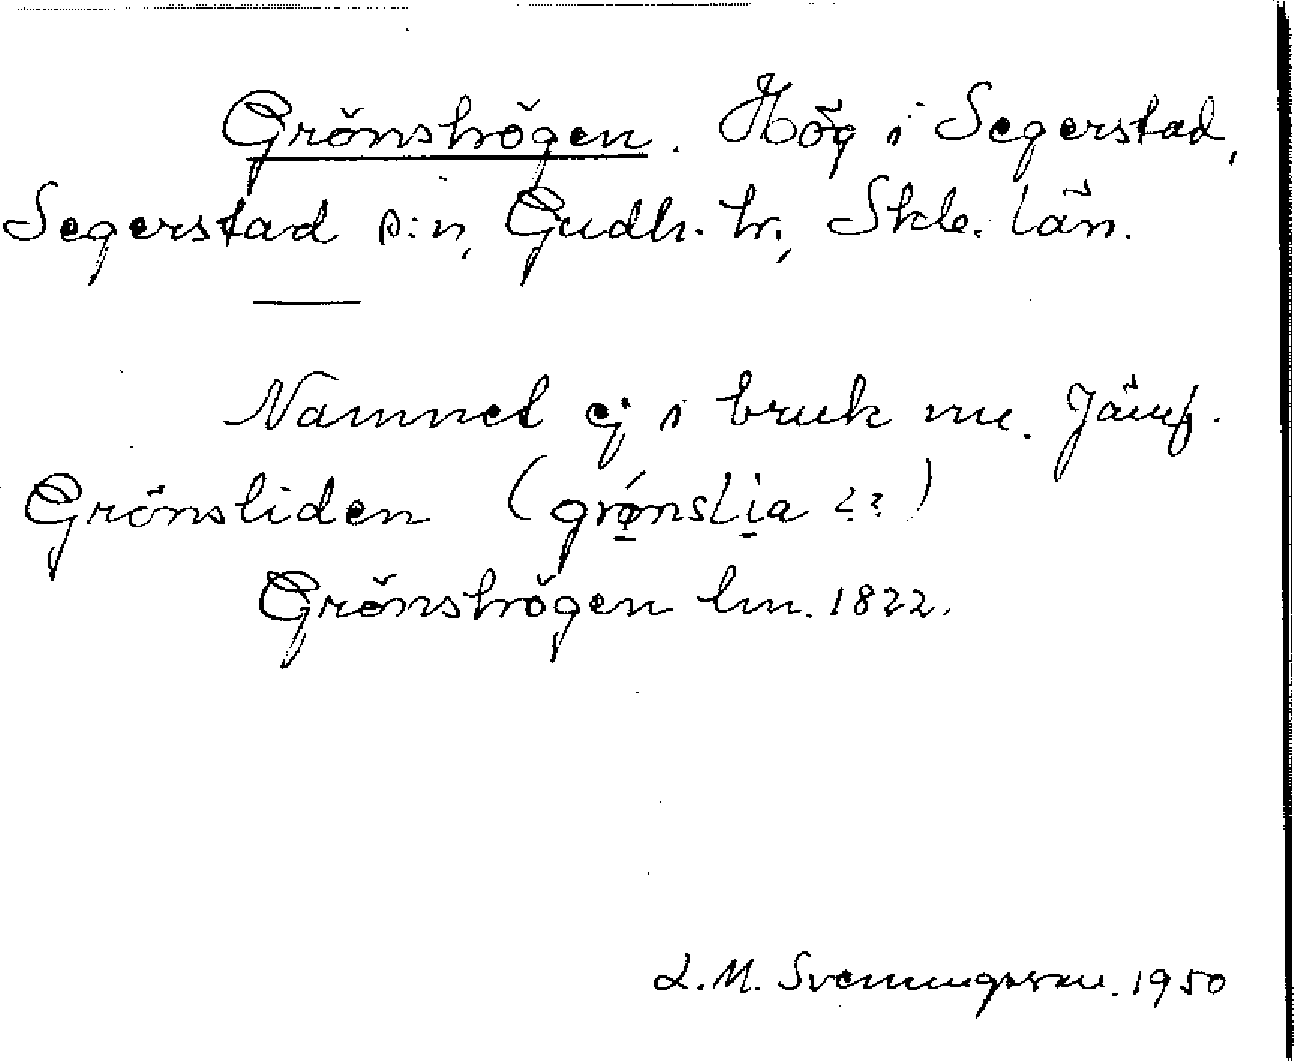 Grönshögen. Hög i Segerstad,
Segerstad s:n, Gudh. hr., Skbg. län.
Namnet ej i bruk nu. Jämf.
Grönsliden (grǿnslia <?)
Grönshögen lm. 1822.
L. M. Svenungsson. 1950